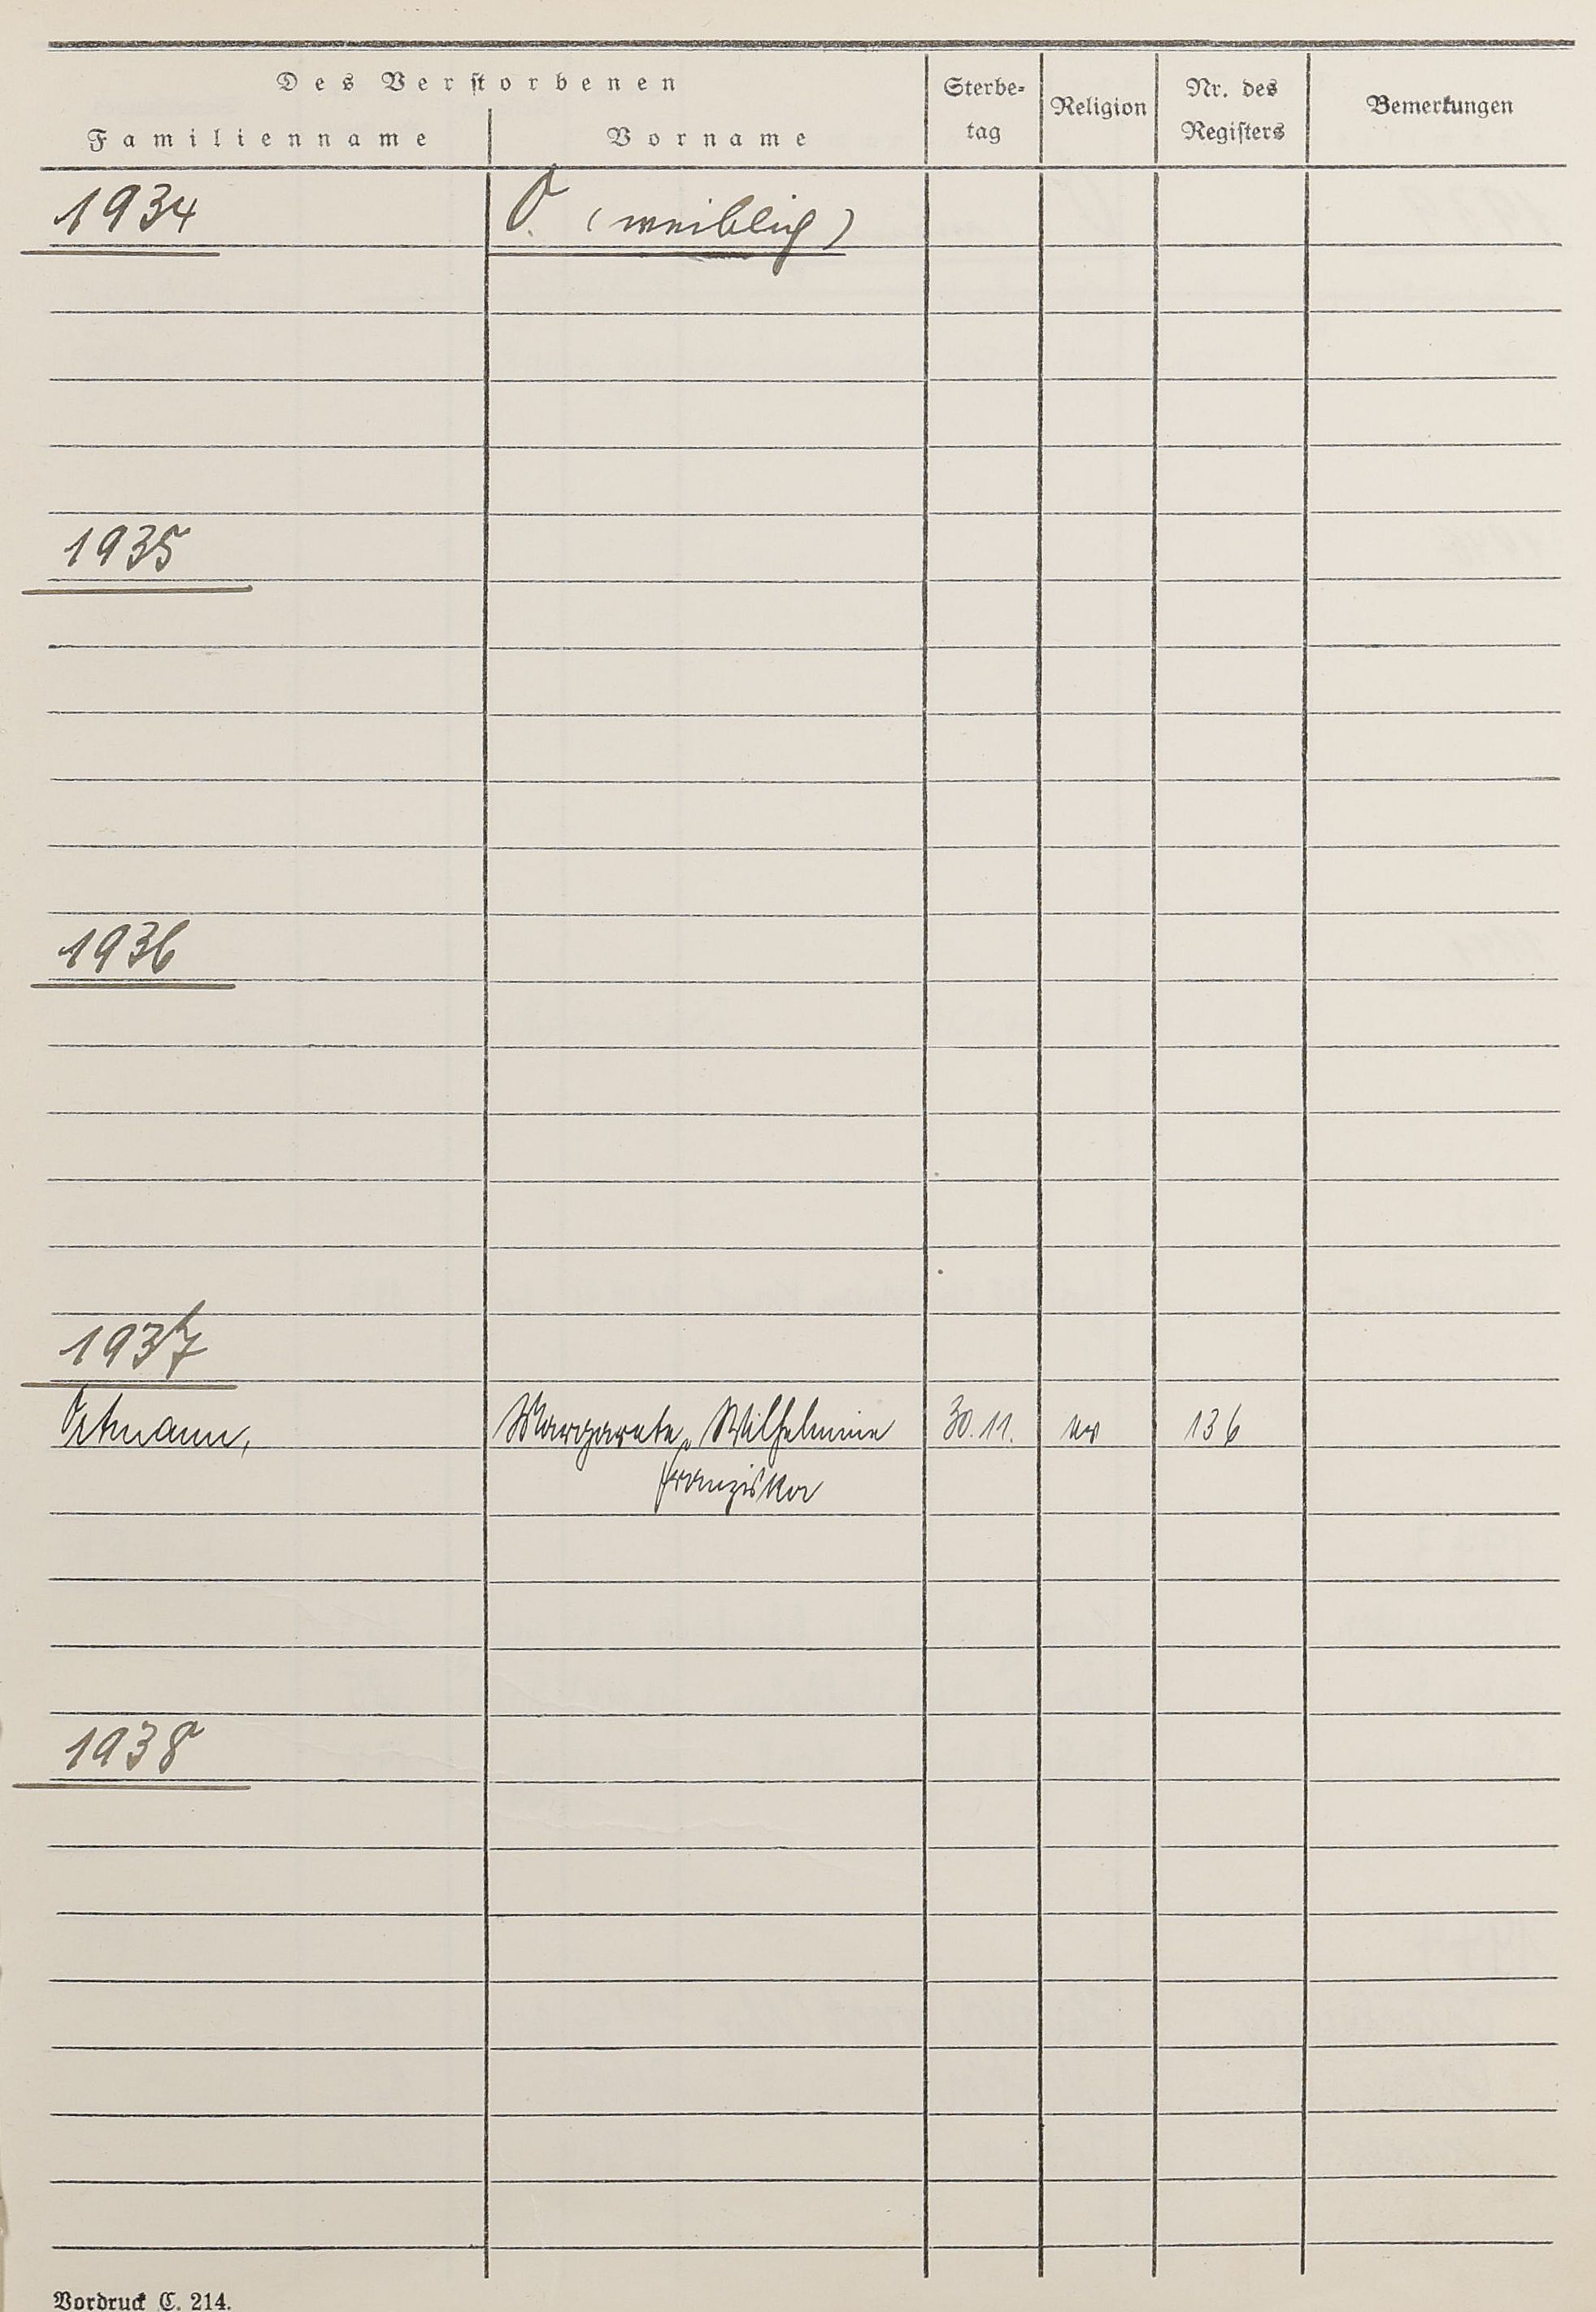 Des Verstorbenen
Familienname Vorname Sterbe-
tag Religion Nr. des
Registers Bemerkungen
1934 O. (weiblich)
1935
1936
1937
Ortmann, Margarete, Wilhelmine 30.11. 136
Franziska
1938
Vordruck C. 214.